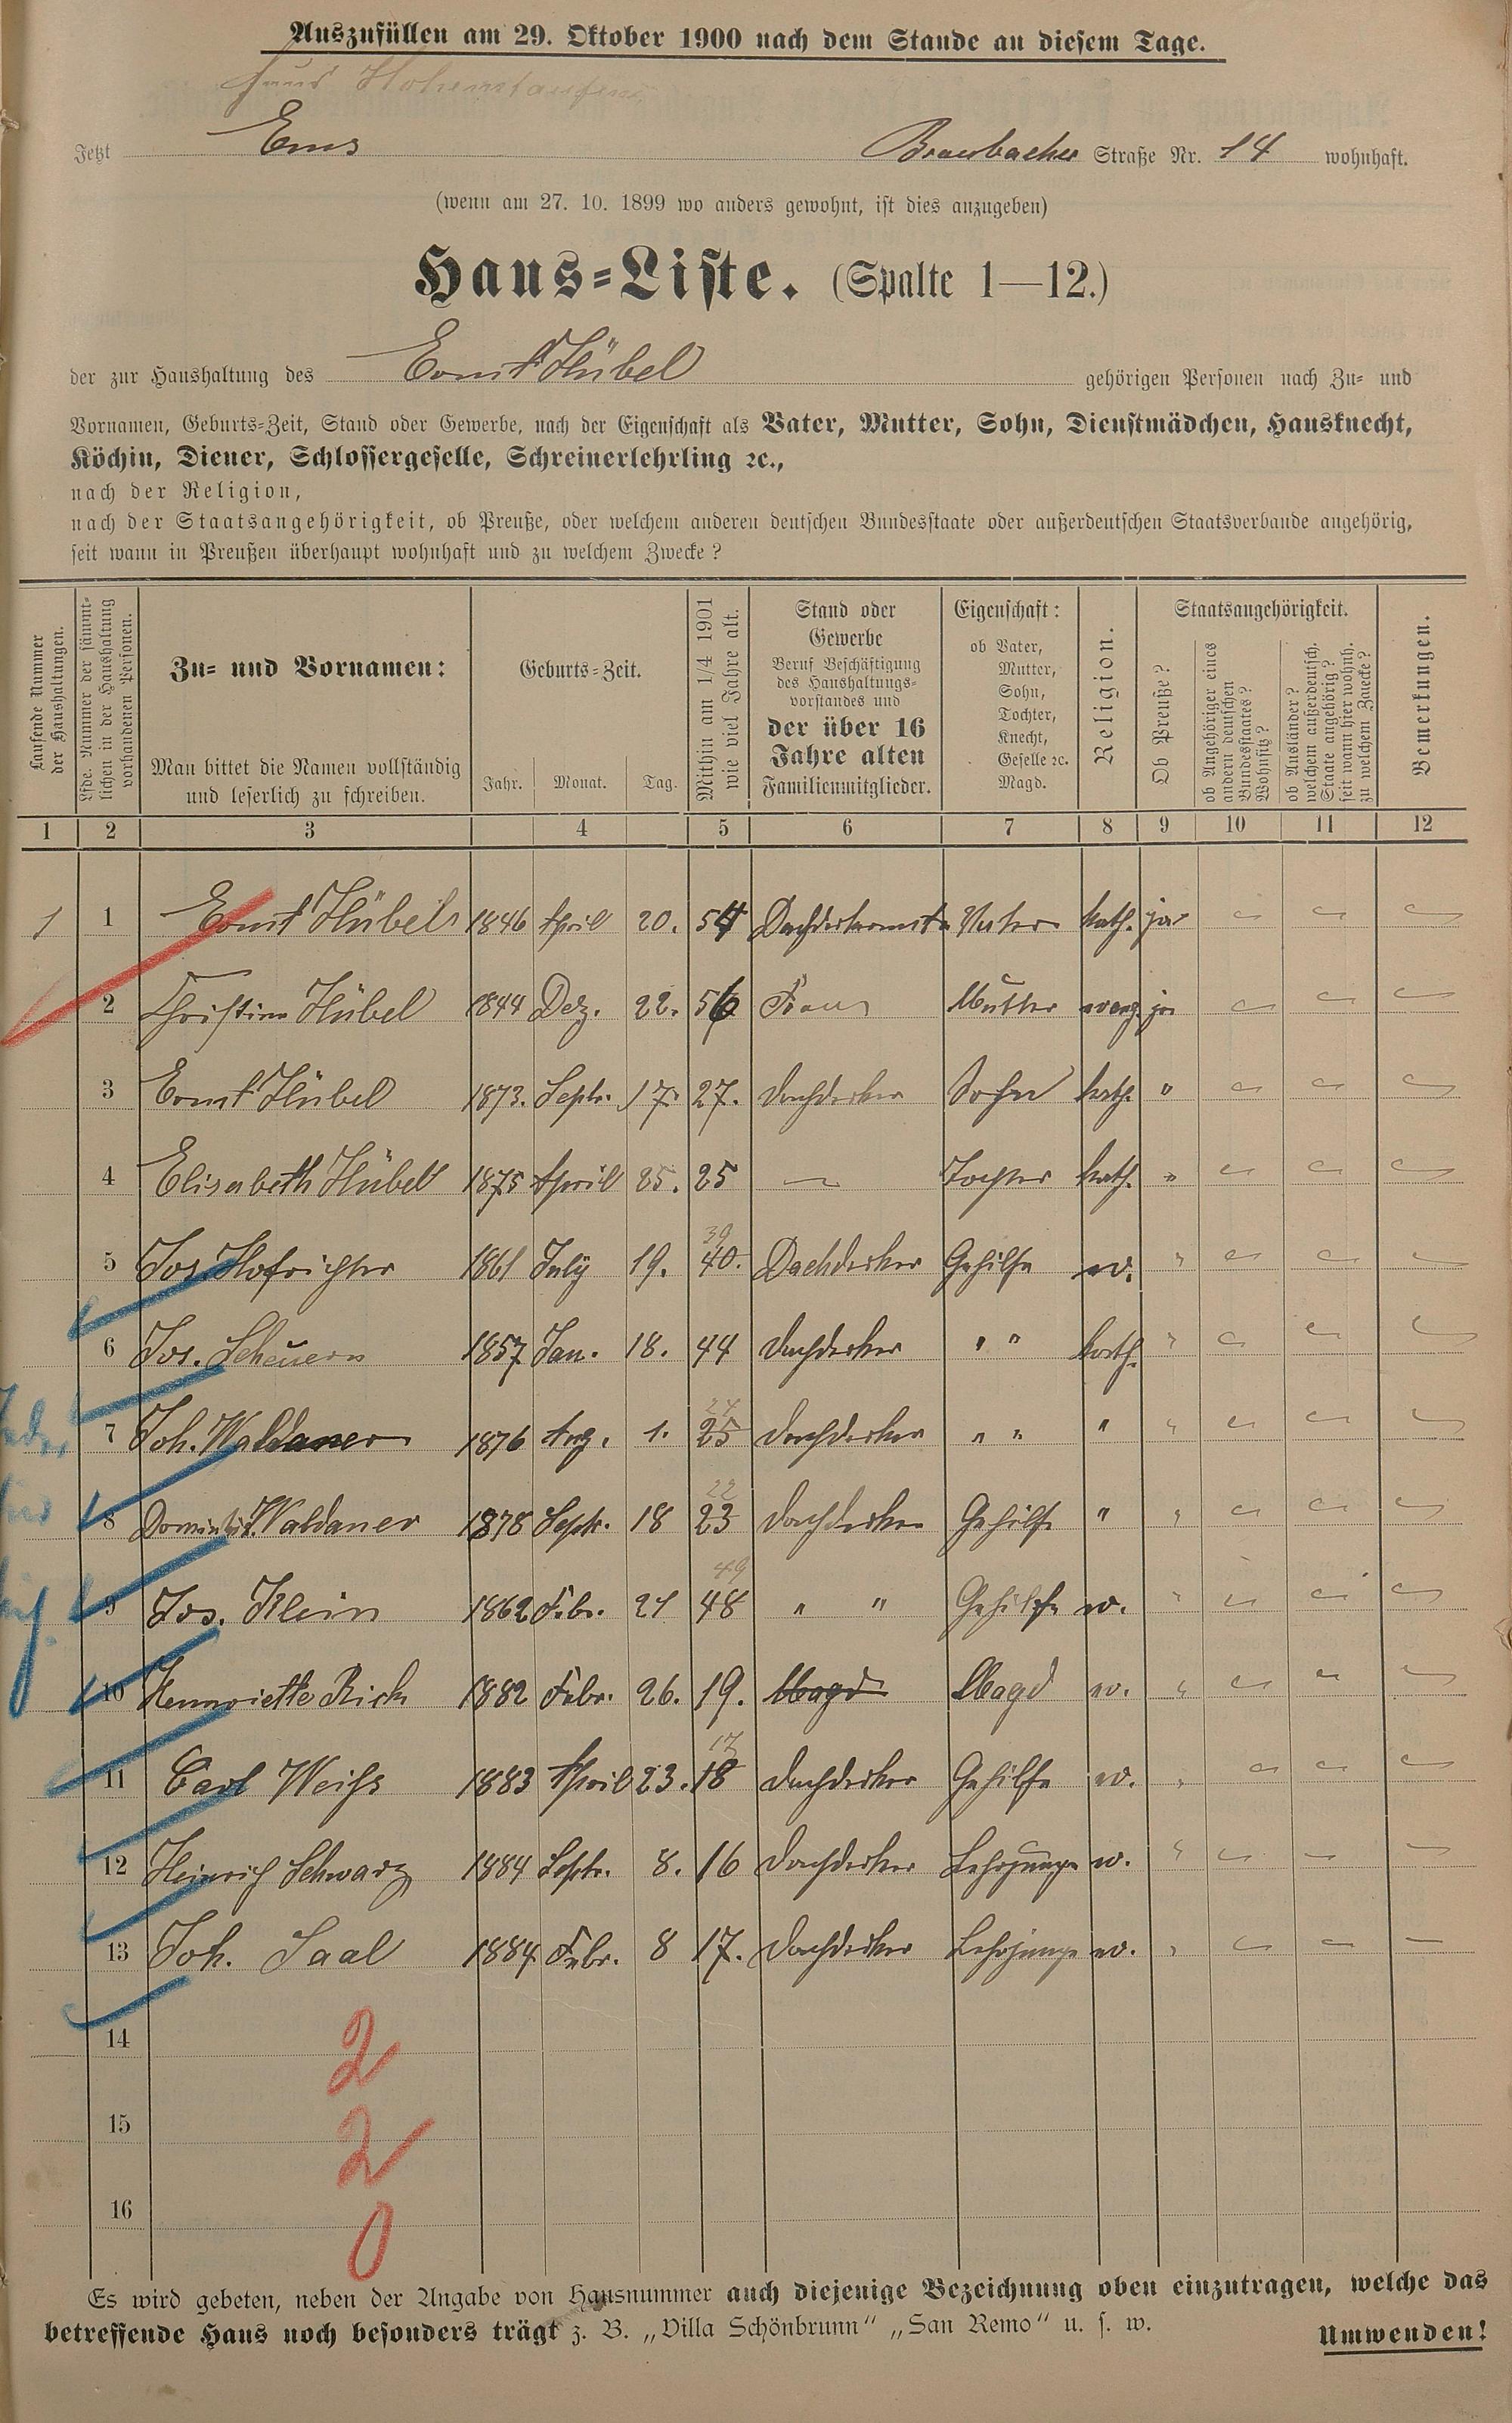 Auszufüllen am 29. Oktober 1900 nach dem Stande an diesem Tage.
Haus Hohenstaufen
Jetzt Ems Braubacher Straße Nr. 14 wohnhaft.
(wenn am 27. 10. 1899 wo anders gewohnt, ist dies anzugeben)
Haus-Liste. (Spalte 1—12.)
der zur Haushaltung des Ernst Hübel gehörigen Personen nach Zu- und
Vornamen, Geburts-Zeit, Stand oder Gewerbe, nach der Eigenschaft als Vater, Mutter, Sohn, Dienstmädchen, Hausknecht,
Köchin, Diener, Schlossergeselle, Schreinerlehrling ꝛc.,
nach der Religion,
nach der Staatsangehörigkeit, ob Preuße, oder welchem anderen deutschen Bundesstaate oder außerdeutschen Staatsverbande angehörig,
seit wann in Preußen überhaupt wohnhaft und zu welchem Zwecke?
Laufende Nummer
der Haushaltungen.
Lfde. Nummer der sämmt-
lichen in der Haushaltung
vorhandenen Personen.
Zu- und Vornamen:
Man bittet die Namen vollständig
und leserlich zu schreiben.
Geburts-Zeit.
Jahr. Monat. Tag.
Mithin am 1/4 1901
wie viel Jahre alt.
Stand oder
Gewerbe
Beruf Beschäftigung
des Haushaltungs-
vorstandes und
der über 16
Jahre alten
Familienmitglieder.
Eigenschaft:
ob Vater,
Mutter,
Sohn,
Tochter,
Knecht,
Geselle ꝛc.
Magd.
Religion.
Staatsangehörigkeit.
Ob Preuße?
ob Angehöriger eines
andern deutschen
Bundesstaates?
Wohnsitz?
ob Ausländer?
welchem außerdeutsch.
Staate angehörig?
seit wann hier wohnh.
zu welchem Zwecke?
Bemerkungen.
1 2 3 4 5 6 7 8 9 10 11 12
1 1 Ernst Hübel 1846 April 20. 54 Vater kath. ja
2 Christine Hübel 1844 Dez. 22. 56 Frau Mutter evang. ja
3 Ernst Hübel 1873. Septr. 17. 27. Dachdecker Sohn kath. "
4 Elisabeth Hübel 1875 April 25. 25 — Tochter kath. "
39
5 Jos. Hofrichter 1861 July 19. 40. Dachdecker Gehilfe ev. "
6 Jos. Scheuern 1857 Jan. 18. 44 Dachdecker " " kath. "
24
7 Joh. Waldaner 1876 Aug. 1. 25 Dachdecker " " " "
22
8 Waldaner 1878 Septr. 18 23 Dachdecker Gehilfe " "
49
9 Jos. Klein 1862 Febr. 21 48 " " Gehilfe ev. "
10 Henriette Rich 1882 Febr. 26. 19. Magd Magd ev. "
17
11 Carl Weiß 1883 April 23. 18 Dachdecker Gehilfe ev. "
12 Heinrich Schwarz 1884 Septr. 8. 16 Dachdecker Lehrjunge ev. "
13 Joh. Saal 1884 Febr. 8 17. Dachdecker Lehrjunge ev. "
14 2
15 2
16 0
Es wird gebeten, neben der Angabe von Hausnummer auch diejenige Bezeichnung oben einzutragen, welche das
betreffende Haus noch besonders trägt z. B. „Villa Schönbrunn" „San Remo" u. s. w.
Umwenden!